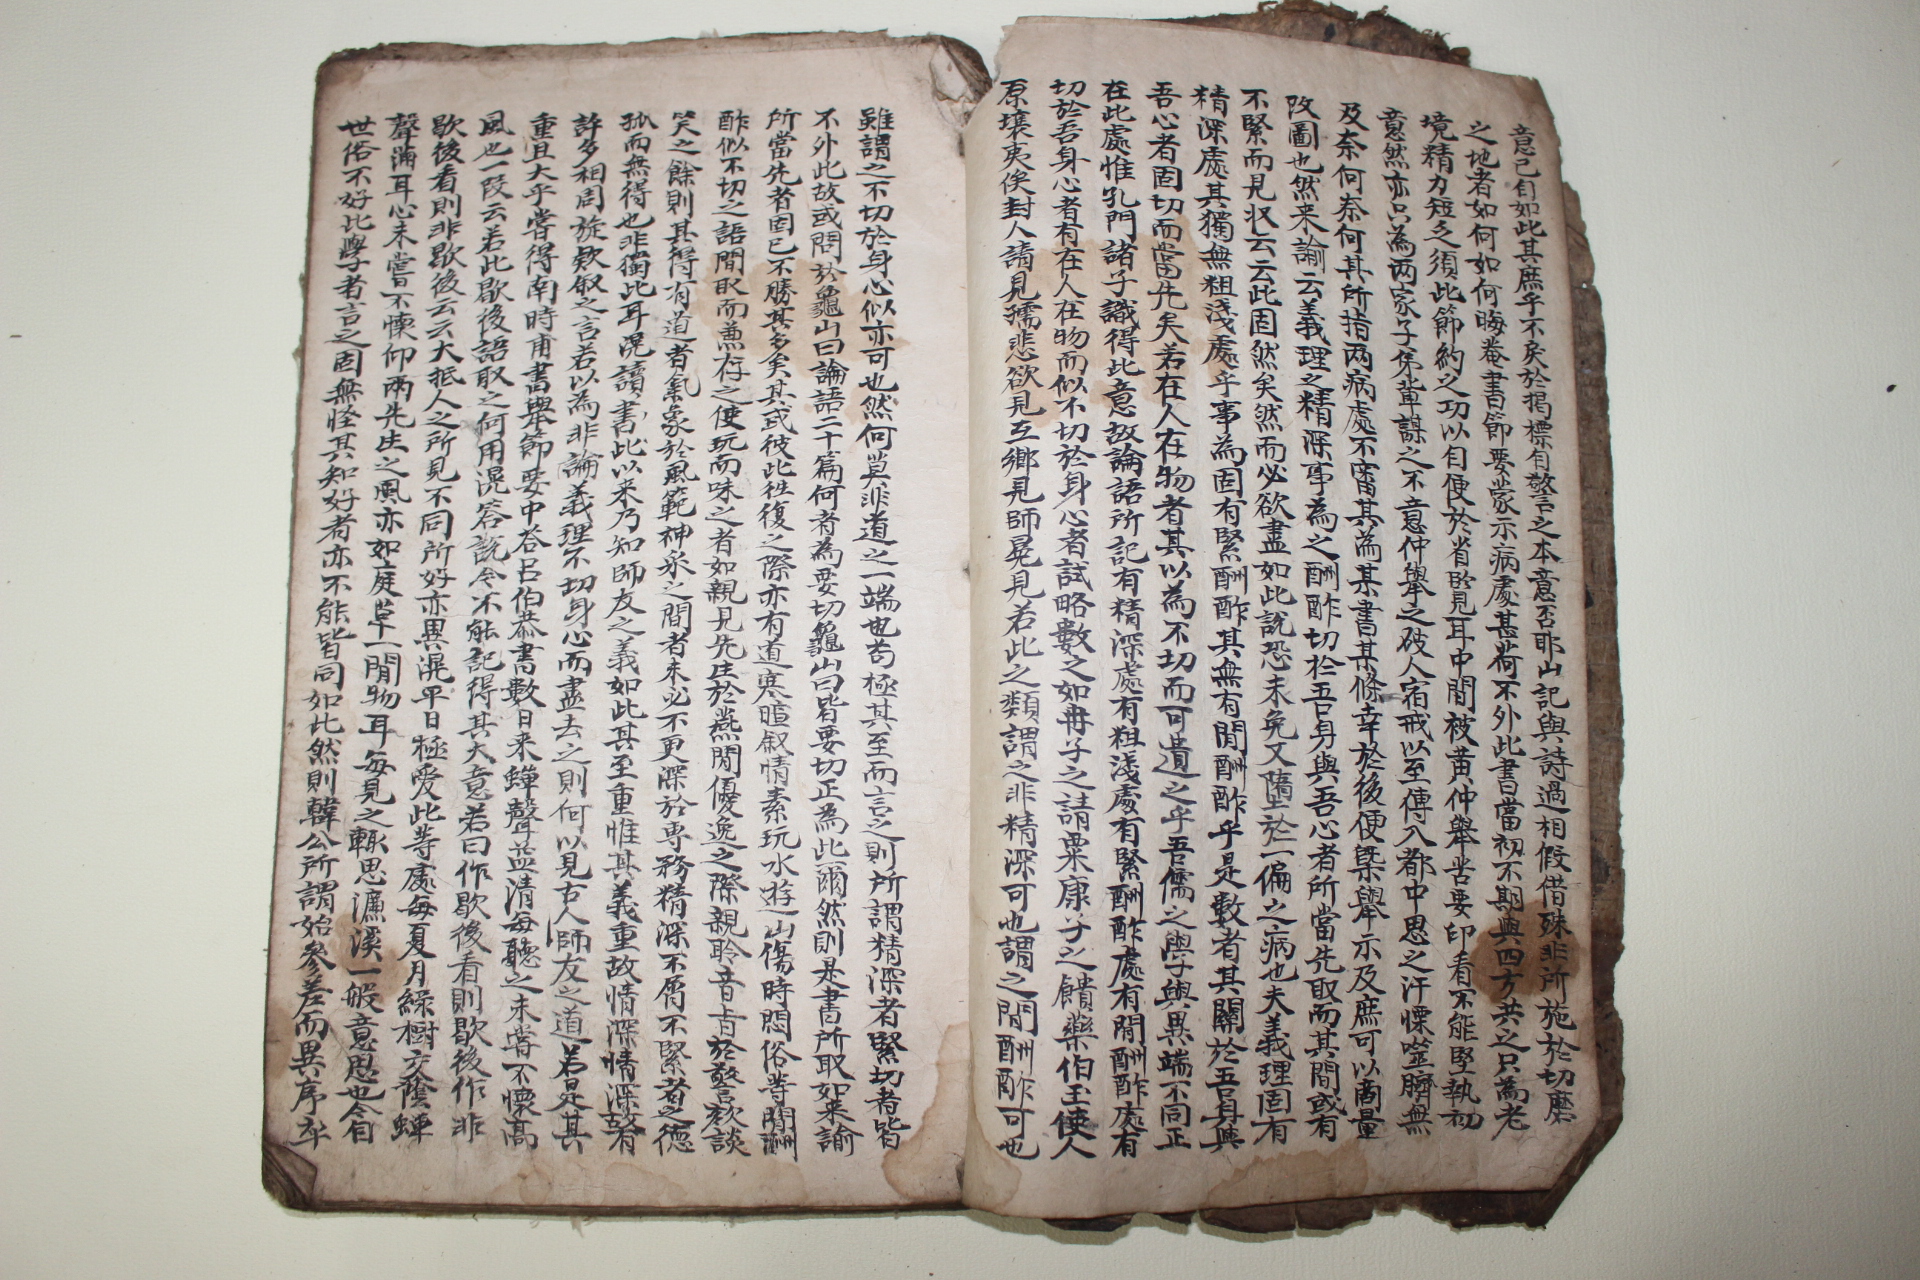 意已自如此其庶乎不戾於揭標自警之本意否耶山記與詩過相假借殊非所施於切磨
之地者如何如何晦菴書節要蒙示病處甚荷不外此書當初不期與四方共之只為老
境精力短乏須此節約之功以自便於省覽耳中間被黃仲舉苦要印看不能堅執初
意然亦只為兩家子弟輩謀之不意仲舉之破人宿戒以至傳入都中思之汗慄噬臍無
及奈何奈何其所指两病處不審其為某書某條幸於後便槩舉示及庶可以商量
改圖也然来諭云義理之精深事為之酬酢切於吾身與吾心者所當先取而其間或有
不緊而見収云云此固然矣然而必欲盡如此說恐未免又墮於一偏之病也夫義理固有
精深處其獨無粗淺處乎事為固有緊酬酢其無有閒酬酢乎是數者其關於吾身與
吾心者固切而當先矣若在人在物者其以為不切而可遺之乎吾儒之學與異端不同正
在此處惟孔門諸子識得此意故論語所記有精深處有粗淺處有緊酬酢處有閒酬酢處有
切於吾身心者有在人在物而似不切於身心者試略數之如冉子之請粟康子之饋藥伯玉使人
原壤夷俟封人請見孺悲欲見互鄉見師冕見若此之類謂之非精深可也謂之閒酬酢可也
雖謂之不切於身心似亦可也然何莫非道之一端也苟極其至而言之則所謂精深者緊切者皆
不外此故或問於龜山曰論語二十篇何者為要切龜山曰皆要切正為此爾然則是書所取如来諭
所當先者固已不勝其多矣其或彼此往復之際亦有道寒暄叙情素玩水遊山傷時悶俗等閒酬
酢似不切之語間取而兼存之使玩而味之者如親見先生於燕閒優逸之際親聆音旨於謦欬談
笑之餘則其得有道者氣象於風範神采之間者未必不更深於專務精深不屑不緊者之德
孤而無得也非獨此耳滉讀書此以来乃知師友之義如此其至重惟其義重故情深情深故有
許多相周旋欵叙之言若以為非論義理不切身心而盡去之則何以見古人師友之道若是其
重且大乎嘗得南時甫書舉節要中答呂伯恭書數日来蟬聲益清每聽之未嘗不懷高
風也一段云若此歇後語取之何用滉答說今不能記得其大意若曰作歇後看則歇後作非
歇後看則非歇後云云大抵人之所見不同所好亦異滉平日極愛此等處每夏月綠樹交蔭蟬
聲滿耳心未嘗不懷仰兩先生之風亦如庭草一閒物耳每見之輒思濂溪一般意思也今自
世俗不好此學者言之固無怪其知好者亦不能皆同如此然則韓公所謂始參差而異序卒